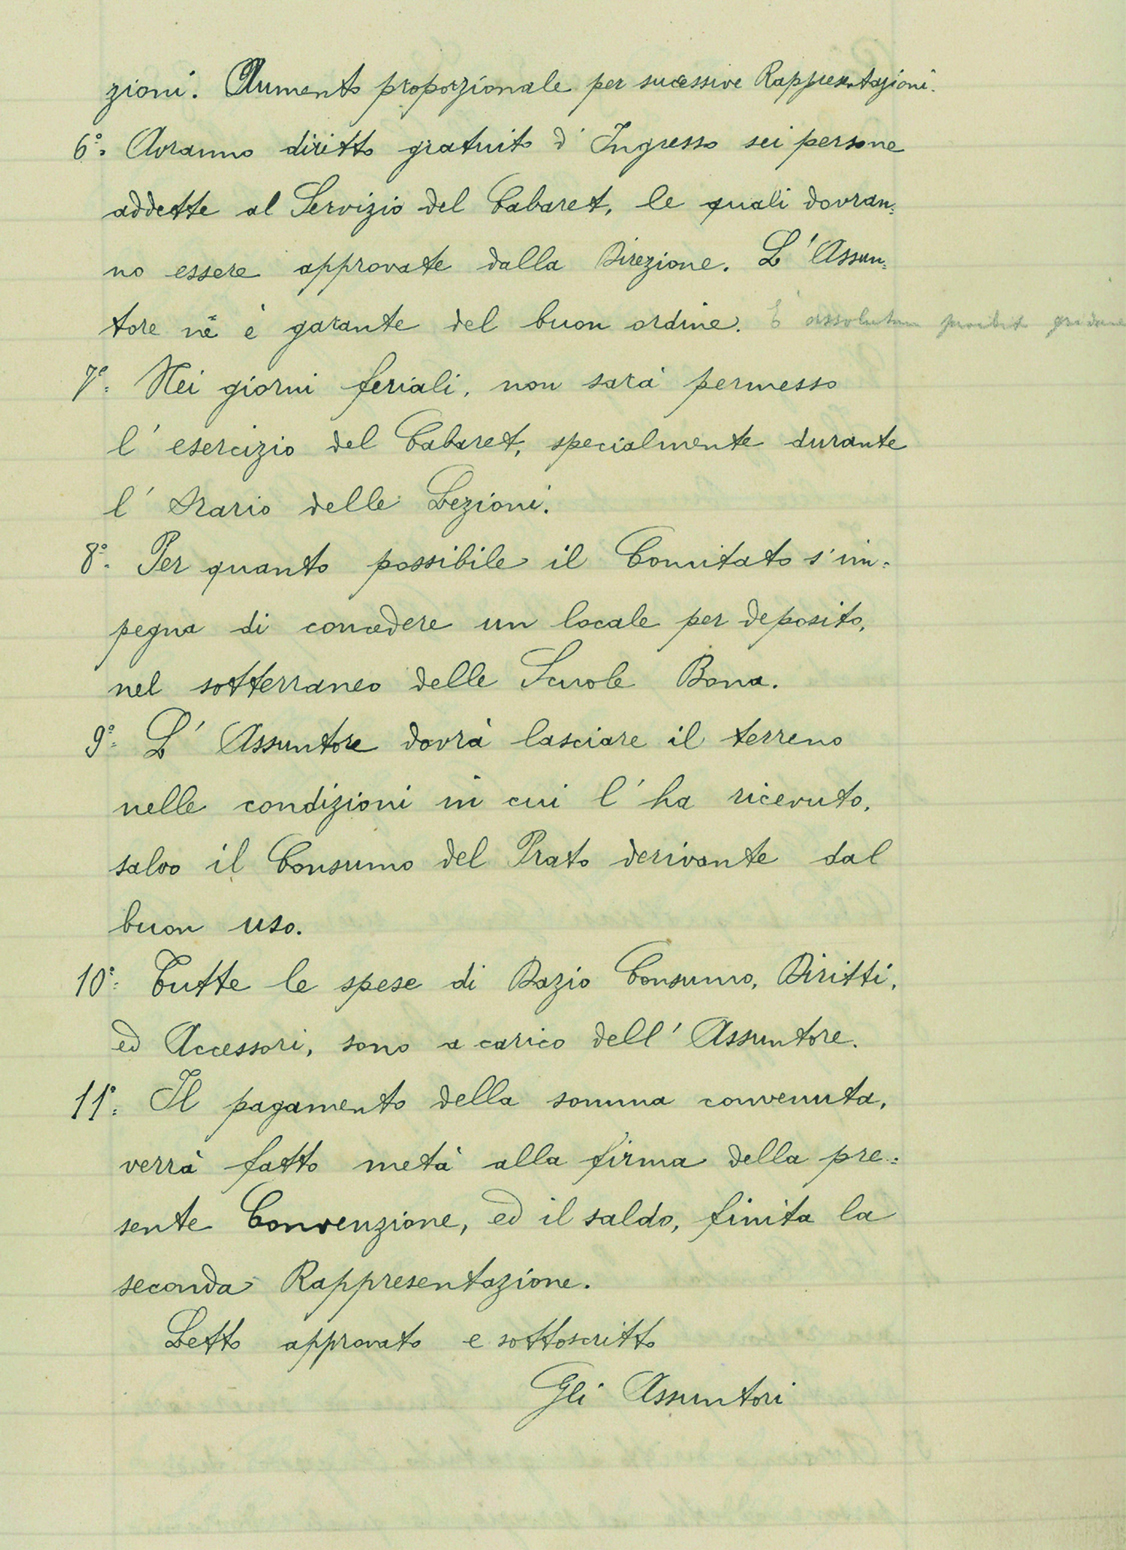 zioni. Aumento proporzionale per sucessive Rappresentazioni.
6°: Avranno diritto gratuito d' Ingresso sei persone
addette al Servizio del Cabaret, le quali dovran:
no essere approvate dalla Direzione. L' Assun:
tore nè è garante del buon ordine. È assolutam proibit gridare
7°: Nei giorni feriali, non sarà permesso
l' esercizio del Cabaret, specialmente durante
l' Orario delle Lezioni.
8°: Per quanto possibile il Comitato s' im:
pegna di concedere un locale per deposito,
nel sotterraneo delle Scuole Bona.
9°: L' Assuntore dovrà lasciare il terreno
nelle condizioni in cui l' ha ricevuto,
salvo il Consumo del Prato derivante dal
buon uso.
10°: Tutte le spese di Dazio Consumo, Diritti,
ed Accessori, sono a carico dell' Assuntore.
11°: Il pagamento della somma convenuta,
verrà fatto metà alla firma della pre:
sente Convenzione, ed il saldo, finita la
seconda Rappresentazione.
Letto approvato e sottoscritto
Gli Assuntori